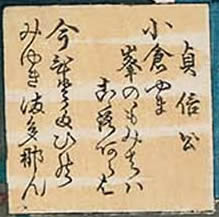 貞信公
小倉やま
峯のもみちハ
こゝろあらは
今ひとたひの
みゆきまた那ん